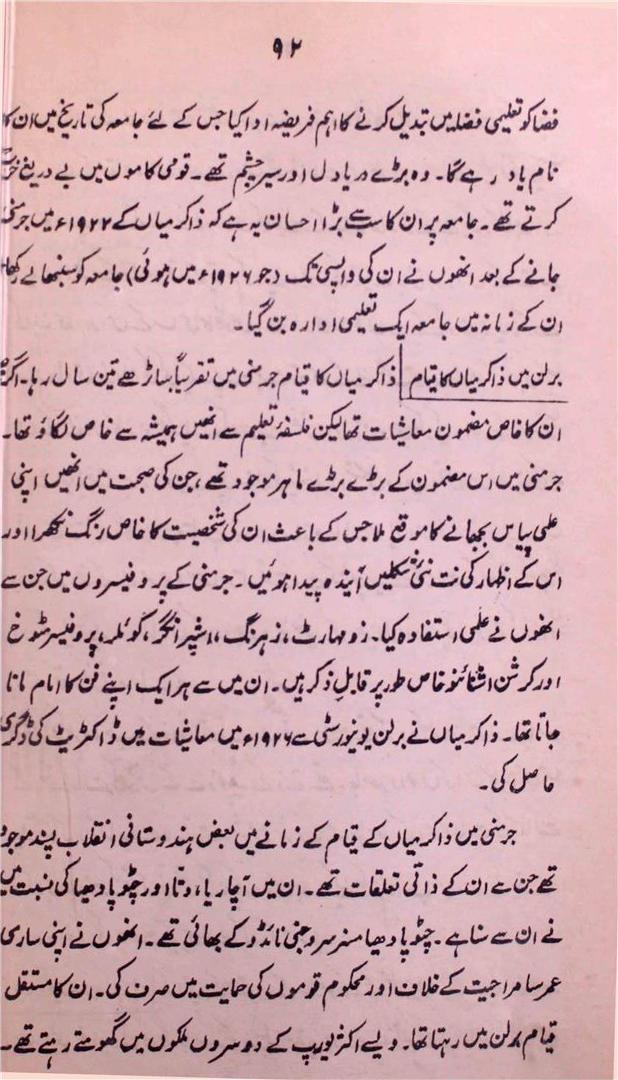 ۹۲
فضا کو تعلیمی فضا میں تبدیل کرنے کا اہم فریضہ ادا کیا جس کے لئے جامعہ کی تاریخ میں ان کا
نام یاد رہے گا۔ وہ بڑے دریا دل اور سیر چشم تھے۔ قومی کاموں میں بے دریغ خرچ
کرتے تھے۔ جامعہ پر ان کا سب سے بڑا احسان یہ ہے کہ ذاکر میاں کے ۱۹۲۲ء میں جرمنی
جانے کے بعد انھوں نے ان کی واپسی تک (جو ۱۹۲۶ء میں ہوئی) جامعہ کو سنبھالے رکھا۔
ان کے زمانہ میں جامعہ ایک تعلیمی ادارہ بن گیا۔
برلن میں ذاکر میاں کا قیام ذاکر میاں کا قیام جرمنی میں تقریباً ساڑھے تین سال رہا۔ اگرچہ
ان کا خاص مضمون معاشیات تھا لیکن فلسفۂ تعلیم سے انھیں ہمیشہ سے خاص لگاؤ تھا۔
جرمنی میں اس مضمون کے بڑے بڑے ماہر موجود تھے، جن کی صحبت میں انھیں اپنی
علمی پیاس بجھانے کا موقع ملا جس کے باعث ان کی شخصیت کا خاص رنگ نکھرا اور
اس کے اظہار کی نت نئی شکلیں آیندہ پیدا ہوئیں۔ جرمنی کے پروفیسروں میں جن سے
انھوں نے علمی استفادہ کیا۔ زومبارٹ، زہرنگ، اشپرانگر، کوئلر، پروفیسر شوخ
اور کرشن اشٹائنر خاص طور پر قابلِ ذکر ہیں۔ ان میں سے ہر ایک اپنے فن کا امام مانا
جاتا تھا۔ ذاکر میاں نے برلن یونیورسٹی سے ۱۹۲۶ء میں معاشیات میں ڈاکٹریٹ کی ڈگری
حاصل کی۔
جرمنی میں ذاکر میاں کے قیام کے زمانے میں بعض ہندوستانی انقلاب پسند موجود
تھے جن سے ان کے ذاتی تعلقات تھے۔ ان میں آچاریا، دتا اور چٹوپادھیا کی نسبت میں
نے ان سے سنا ہے۔ چٹوپادھیا مسز سروجنی نائڈو کے بھائی تھے۔ انھوں نے اپنی ساری
عمر سامراجیت کے خلاف اور محکوم قوموں کی حمایت میں صرف کی۔ ان کا مستقل
قیام برلن میں رہتا تھا۔ ویسے اکثر یورپ کے دوسروں ملکوں میں گھومتے رہتے تھے۔